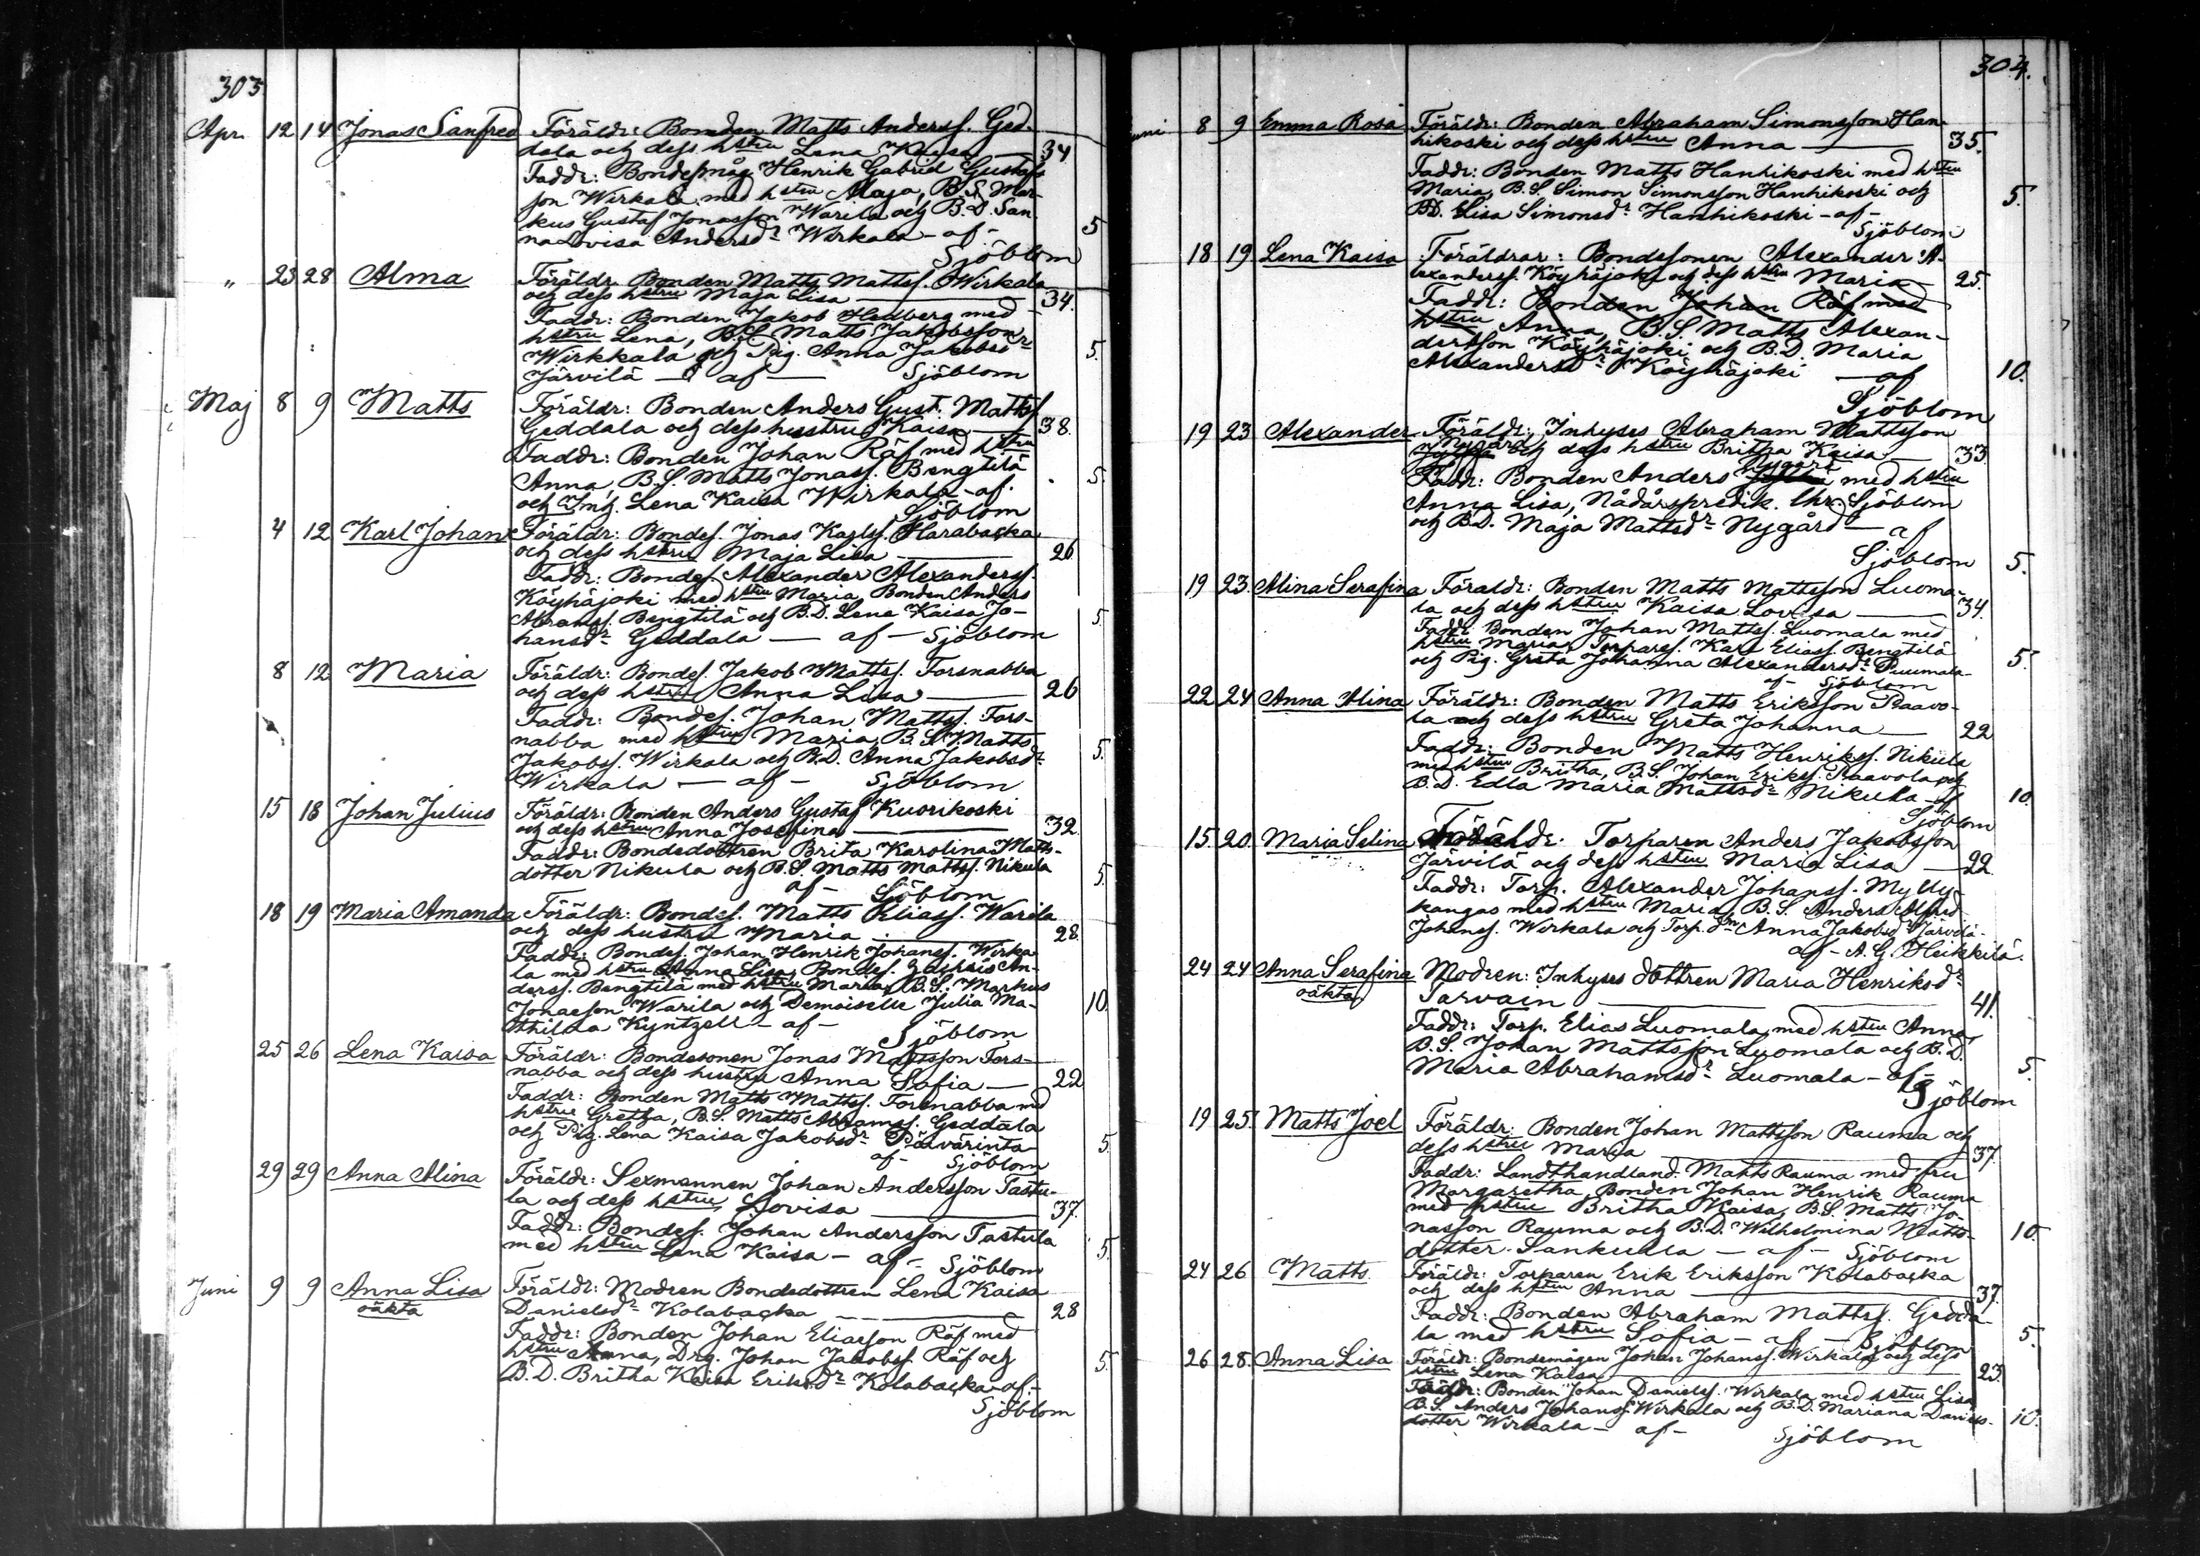 303
Apr. 12 14 Jonas Sanfred Föräldr: Bonden Matts Anderss. Ged-
dala och dess hstru Lena Kajsa — 34.
Faddr: Bondemåg Henrik Gabriel Gustafs-
son Wirkala med hstru Maja, B.S. Mar-
kus Gustaf Jonasson Warila och B.D. San-
na Lovisa Andersdr Wirkala – af – 5
Sjöblom
" 23 28 Alma Föräldr. Bonden Matts Mattss. Wirkala
och dess hstru Maja Lisa — 34.
Faddr: Bonden Jakob Hedberg med
hstru Lena, B.S. Matts Jakobsson
Wirkkala och Pig. Anna Jakobsdr 5.
Järvilä — af — Sjöblom
Maj 8 9 Matts Föräldr: Bonden Anders Gust. Mattss.
Geddala och dess hustru Kaisa — 38.
Faddr: Bonden Johan Räf med hstru
Anna, B.S. Matts Jonass. Bengtilä 5.
och Lena Kaisa Wirkala – af.
Sjöblom
4 12 Karl Johan Föräldr: Bondes. Jonas Karlss. Harabacka
och dess hstru Maja Lisa — 26
Faddr: Bondes. Alexander Alexanderss.
Köyhäjoki med hstru Maria, Bonden Anders
Abramss. Bengtilä och B.D. Lena Kaisa Jo- 5.
hansdr Geddala — af – Sjöblom
8 12 Maria Föräldr: Bondes. Jakob Mattss. Forsnabba
och dess hstru Anna Lisa — 26
Faddr: Bondes. Johan Mattss. Fors-
nabba med hstru Maria, B.S. Matts
Jakobss. Wirkala och B.D. Anna Jakobsdr 5.
Wirkala — af – Sjöblom
15 18 Johan Julius Föräldr: Bonden Anders Gustaf Kuorikoski
och dess hstru Anna Josefina — 32
Faddr: Bondedottren Brita Karolina Matts-
dotter Nikula och B.S. Matts Mattss. Nikula 5.
af – Sjöblom
18 19 Maria Amanda Föräldr: Bondes. Matts Eliass. Warila
och dess hustru Maria — 28.
Faddr: Bondes. Johan Henrik Johanss. Wirka-
la med hstru Anna Lisa, Bondes. Zachris An-
derss. Bengtilä med hstru Maria, B.S. Markus
Jonasson Warila och Demoiselle Julia Ma- 10.
thilda Kyntzell – af –
Sjöblom
25 26 Lena Kaisa Föräldr: Bondesonen Jonas Mattsson Fors-
nabba och dess hustru Anna Sofia — 22
Faddr: Bonden Matts Mattss. Forsnabba med
hstru Gretha, B.S. Matts Abramss. Geddala
och Pig. Lena Kaisa Jakobsdr Päivärinta 5.
af – Sjöblom
29 29 Anna Alina Föräldr: Sexmannen Johan Andersson Tastu-
la och dess hstru Lovisa — 37.
Faddr: Bondes. Johan Andersson Tastula
med hstru Lena Kaisa – af – 5.
Sjöblom
Juni 9 9 Anna Lisa Föräldr: Modren Bondedottren Lena Kaisa
oäkta Danielsdr Kolabacka — 28
Faddr: Bonden Johan Eliasson Räf med
hstru Anna, Drg. Johan Jakobss. Räf och
B.D. Britha Kaisa Eriksdr Kolabacka – af. – 5.
Sjöblom
304.
8 9 Emma Rosa Föräldr: Bonden Abraham Simonsson Han-
hikoski och dess hstru Anna — 35.
Faddr: Bonden Matts Hanhikoski med hstru
Maria, B.S. Simon Simonsson Hanhikoski och
B.D. Lisa Simonsdr Hanhikoski – af – 5.
Sjöblom
18 19 Lena Kaisa Föräldrar: Bondesonen Alexander A-
lexanderss. Köyhäjoki och dess hstru Maria – 25.
Faddr: Bonden Johan Räf med
hstru Anna, B.S. Matts Alexan-
dersson Köyhäjoki och B.D. Maria
Alexandersdr Köyhäjoki — af 10.
Sjöblom
19 23 Alexander Föräldr: Inhyses Abraham Mattsson
Nygård och dess hstru Britha Kaisa — 33.
Nygård
Faddr: Bonden Anders med hstru
Anna Lisa, Nådårspredik. Chr. Sjöblom
och B.D. Maja Mattsdr Nygård – af
Sjöblom 5.
19 23. Alina Serafina Föraldr: Bonden Matts Mattsson Luoma-
la och dess hstru Kaisa Lovisa — 34.
Faddr: Bonden Johan Mattss. Luomala med
hstru Maria, Torpares. Karl Eliass. Bengtilä
och Pig. Greta Johanna Alexandersdr Puumala 5.
af – Sjöblom
22 24 Anna Alina Föräldr: Bonden Matts Eriksson Raavo-
la och dess hstru Greta Johanna — 22
Faddr: Bonden Matts Henrikss. Nikula
med hstru Britha, B.S. Johan Erikss. Raavola och
B.D. Edla Maria Mattsdr Nikula – af 10.
Sjöblom
15 20. Maria Selina Föräldr: Torparen Anders Jakobsson
Järvilä och dess hstru Maria Lisa — 22.
Faddr: Torp. Alexander Johanss. Mylly-
kangas med hstru Maria, B.S. Anders Alfred
Johanss. Wirkala och Torp. dr Anna Jakobsdr Järvilä –
af – A. G. Heikkilä.
24 24 Anna Serafina Modren: Inhyses dottren Maria Henriksdr
oäkta Parvain — 41.
Faddr: Torp. Elias Luomala med hstru Anna
B.S. Johan Mattsson Luomala och B.D.
Maria Abrahamsdr Luomala – af – 5.
Sjöblom
19 25. Matts Joel Föräldr: Bonden Johan Mattsson Rauma och
dess hstru Maria — 37.
Faddr: Landthandland. Matts Rauma med fru
Margaretha, Bonden Johan Henrik Rauma
med hstru Britha Kaisa, B.S. Matts Jo-
nasson Rauma och B.D. Wilhelmina Matts- 10.
dotter Sankuala — af – Sjöblom
24 26 Matts Föräldr: Torparen Erik Eriksson Kolabacka
och dess hstru Anna — 37.
Faddr: Bonden Abraham Mattss. Gedda-
la med hstru Sofia – af – Sjöblom 5.
26 28. Anna Lisa Föräldr: Bondemågen Johan Johanss. Wirkala och dess
hstru Lena Kaisa — 23.
Faddr: Bonden Johan Danielss. Wirkala med hstru Lisa
B.S. Anders Johanss. Wirkala och B.D. Mariana Daniels- 10.
dotter Wirkala – af –
Sjöblom